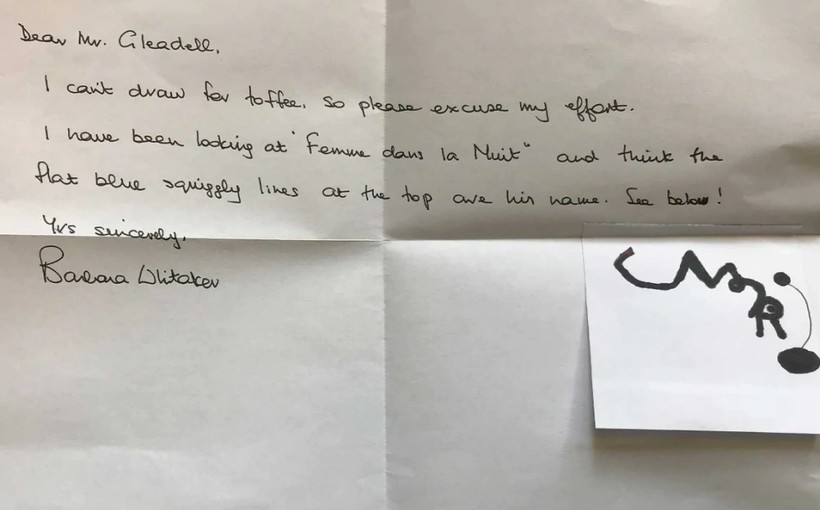 Dear Mr. Gleadell,
I can't draw for toffee, so please excuse my effort.
I have been looking at "Femme dans la Nuit" and think the
flat blue squiggly lines at the top are his name. See below!
Yrs sincerely,
Barbara Whitaker